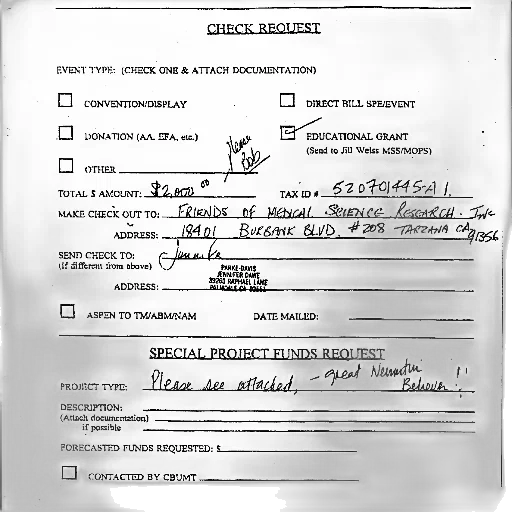 CHECK REQUEST
EVENT TYPE: (CHECK ONE & ATTACH DOCUMENTATION)
CONVENTION/DISPLAY
DIRECT BILL SPE/EVENT
DONATION (AA, EFA, etc.)
EDUCATIONAL GRANT
(Send to Jill Weiss MSS/MOPS)
OTHER
Bob
TOTAL $ AMOUNT: $2,000 00
TAX ID # 520701445-A1.
MAKE CHECK OUT TO: FRIENDS OF MEDICAL SCIENCE RESEARCH. INC
ADDRESS: 18401 BURBANK BLVD. #208 TARZANA CA 91356
SEND CHECK TO:
(If different from above)
PARKE-DAVIS
JENNIFER DAWE
RAPHAEL LANE
PALMDALE CA
ADDRESS:
ASPEN TO TM/ABM/NAM
DATE MAILED:
SPECIAL PROJECT FUNDS REQUEST
PROJECT TYPE: Please see attached, - great Neurontin Believer!!
DESCRIPTION:
(Attach documentation)
if possible
FORECASTED FUNDS REQUESTED: $
CONTACTED BY CBUMT